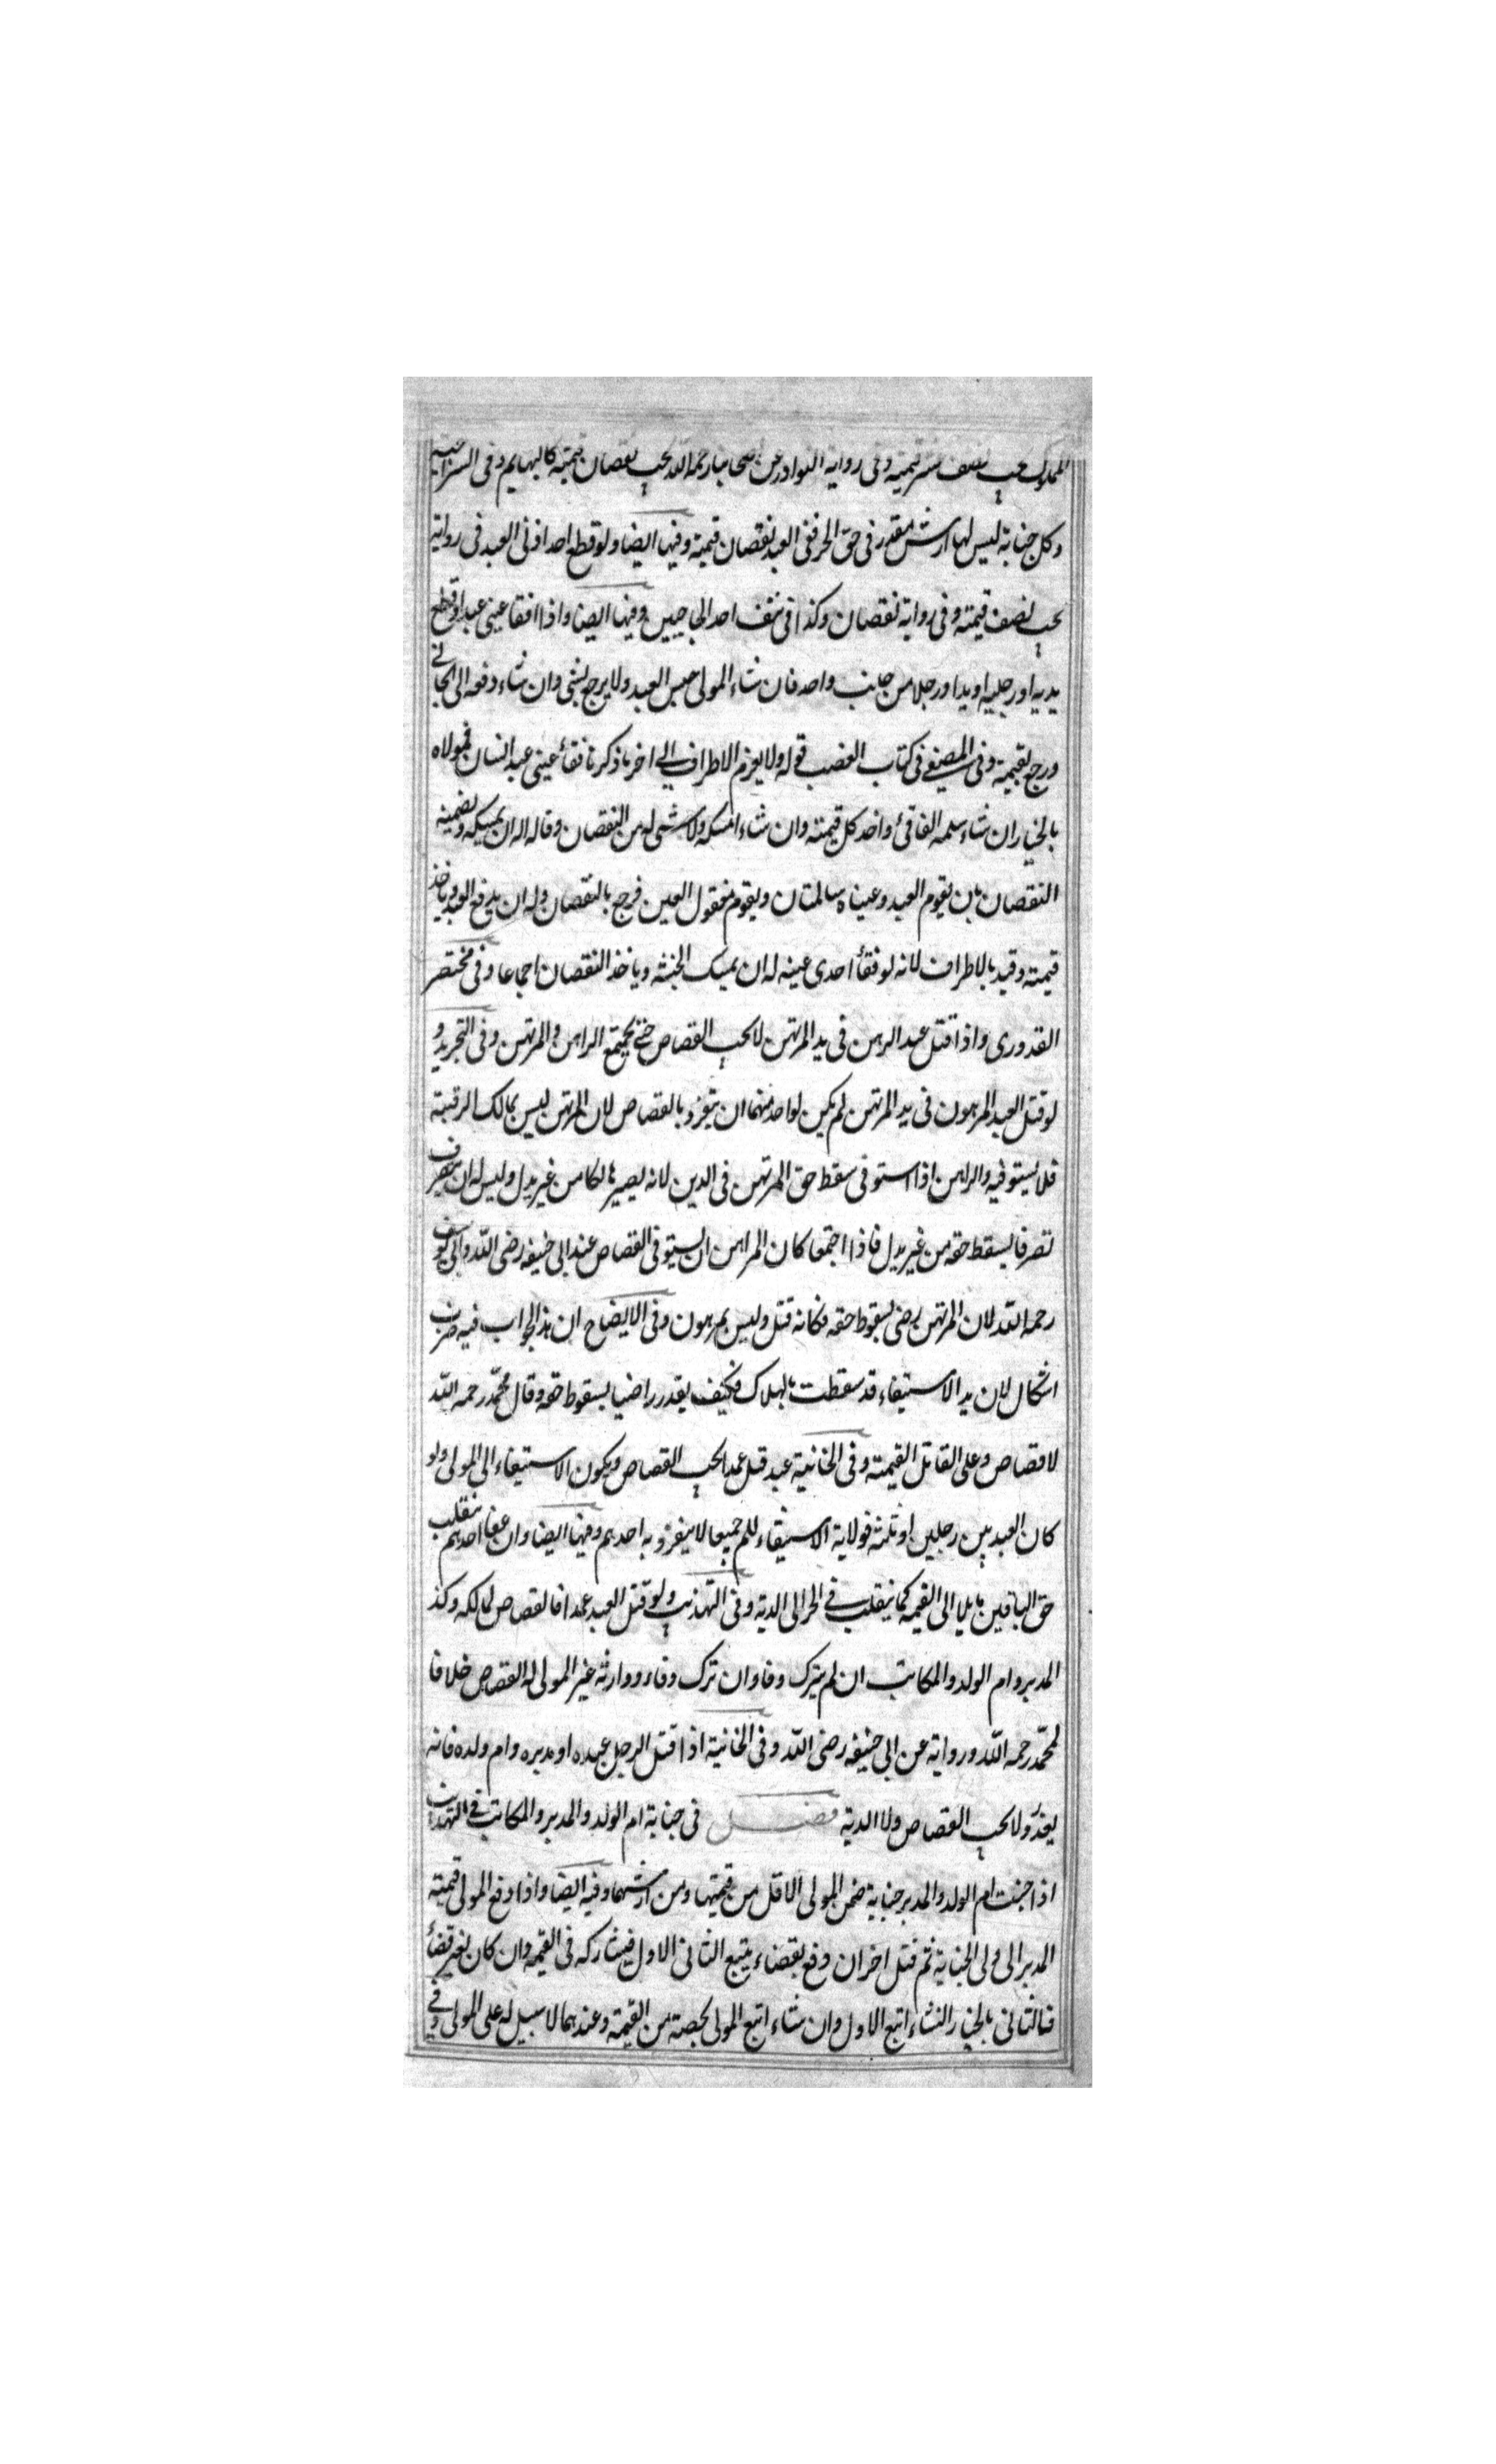 المملوك يجب نصف عشر قيمته وفى رواية النوادر عن اصحابنا رحمه الله يجب نقصان قيمته كالبهايم وفى السراجية
وكل جناية ليس لها ارش مقدر فى حق الحر ففى العبد نقصان قيمته وفيها ايضا ولو قطع احد اذنى العبد فى رواية
يجب نصف قيمته وفى رواية نقصان وكذا فى نتف احد الحاجبين وفيها ايضا واذا افقا عينى عبد او قطع
يديه او رجليه او يدا ورجلا من جانب واحد فان شاء المولى حبس العبد ولا يرجع بشى وان شاء دفعه الى الجانى
ورجع بقيمته وفى المصفى فى كتاب الغصب قوله ولا يغرم الاطراف الى اخر ما ذكرنا فقأ عينى عبد انسان فمولاه
بالخيار ان شاء سلمه الفاقئ واخذ كل قيمته وان شاء امسكه ولا شى له من النقصان وقالا له ان يمسكه ويضمنه
النقصان بان يقوم العبد وعيناه سالمتان ويقوم مفقول العين فرجع بالنقصان وله ان يدفع العبد وياخذ
قيمته وقيد بالاطراف لانه لو فقأ احدى عينه له ان يمسك الجثه وياخذ النقصان اجماعا وفى مختصر
القدورى واذا قتل عبد الرهن فى يد المرتهن لا يجب القصاص حتى يجتمع الراهن والمرتهن وفى التجريد و
لو قتل العبد المرهون فى يد المرتهن لم يكن لواحد منهما ان يتفرد بالقصاص لان المرتهن ليس بمالك الرقبة
فلا يستوفيه والراهن اذا استوفى سقط حق المرتهن فى الدين لانه يصير هالكا من غير بدل وليس له ان يتصرف
تصرفا يسقط حقه من غير بدل فاذا اجتمعا كان المراهن ان يستوفى القصاص عند ابى حنيفه رضى الله وابى يوسف
رحمه الله لان المرتهن رضى بسقوط حقه فكانه قتل وليس بمرهون وفى الايضاح ان هذا الجواب فيه ضرب
اشكال لان يد الاستيفاء قد سقطت بالهلاك فكيف يقدر راضيا بسقوط حقه وقال محمد رحمه الله
لا قصاص وعلى القاتل القيمته وفى الخانية عبد قتل عمدا يجب القصاص ويكون الاستيفاء الى المولى ولو
كان العبد بين رجلين او ثلثه فولاية الاستيفاء للهم جميعا لا ينفرد به احدهم وفيها ايضا وان عفا احدهم ينقلب
حق الباقين بايلا الى القيمه كما ينقلب فى الحر الى الدية وفى التهذيب ولو قتل العبد عمدا فالقصاص لمالكه وكذ
المدبر وام الولد والمكاتب ان لم يترك وفا وان ترك وفاء ووارثه غير المولى له القصاص خلافا
لمحمد رحمه الله ورواية عن ابى حنيفه رضى الله وفى الخانية اذا قتل الرجل عبده او مدبره وام ولده فانه
يعذر ولا يجب القصاص ولا الدية فصل فى جناية ام الولد والمدبر والمكاتب فى التهذيب
اذا جنت ام الولد والمدبر جناية ضمن المولى الاقل من قيمتها ومن ارشهما وفيه ايضا واذا دفع المولى قيمته
المدبر الى ولى الجناية ثم قتل اخر ان دفع بقضاء يتبع الثانى الاول فيشاركه فى القيمه وان كان بغير قضأ
فالثانى بالخيار ان شاء اتبع الاول وان شاء اتبع المولى بحصته من القيمة وعندهما لا سبيل له على المولى وفى